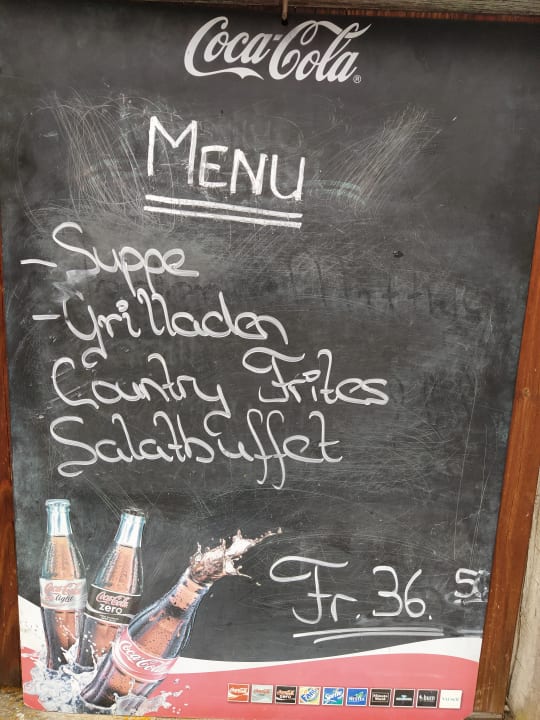 Coca-Cola
MENU
- Suppe
- Grilladen
Country Frites
Salatbuffet
Fr. 36. 5
Coca-Cola
light
Coca-Cola
zero
Coca-Cola